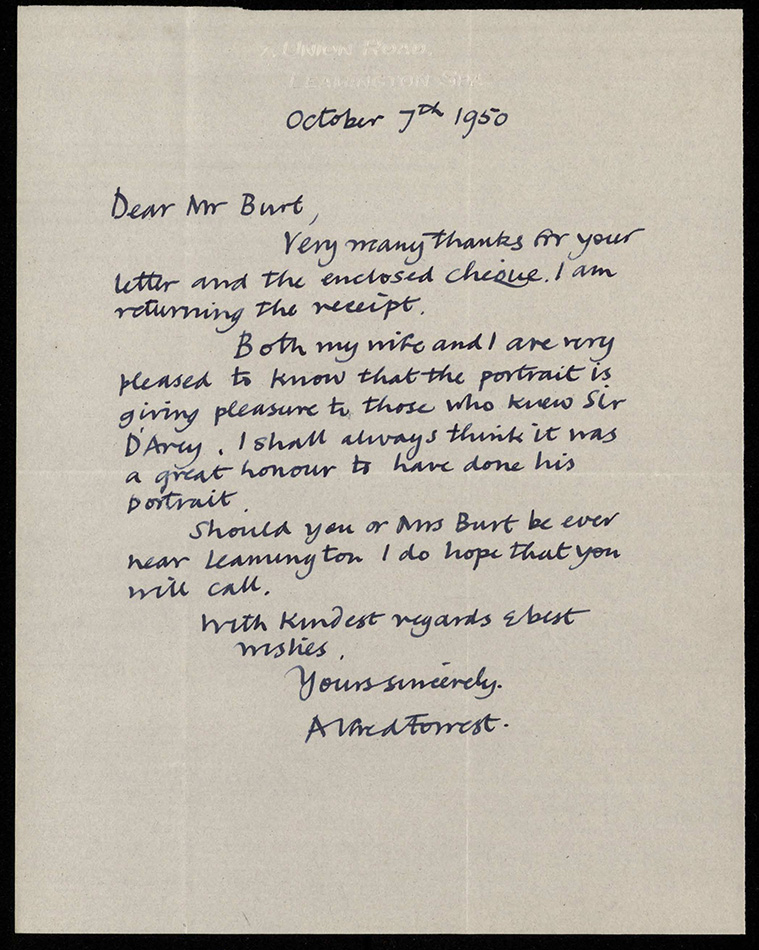 7, UNION ROAD,
LEAMINGTON SPA
October 7th 1950
Dear Mr Burt,
Very many thanks for your
letter and the enclosed cheque. I am
returning the receipt.
Both my wife and I are very
pleased to know that the portrait is
giving pleasure to those who knew Sir
D'Arcy. I shall always think it was
a great honour to have done his
portrait.
Should you or Mrs Burt be ever
near Leamington I do hope that you
will call.
With kindest regards & best
wishes.
Yours sincerely.
Alfred Forrest.